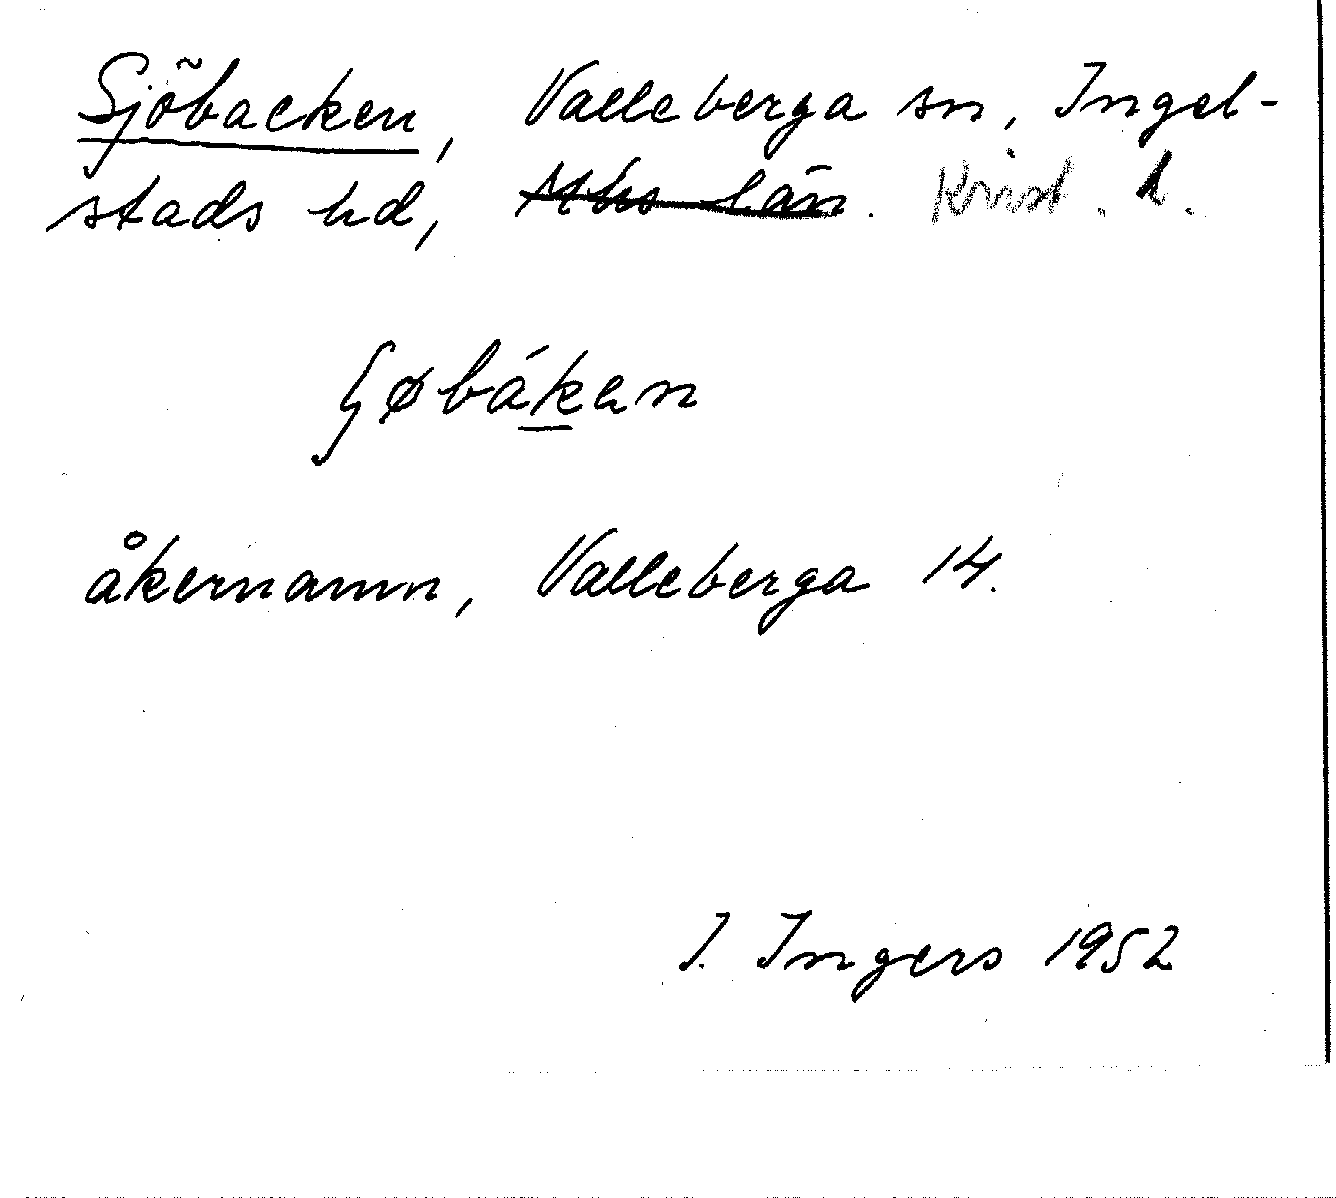 Sjöbacken, Valleberga sn, Ingel-
stads hd, Mhs län. Krist. l.
ʃøbákən
åkernamn, Valleberga 14.
I. Ingers 1952